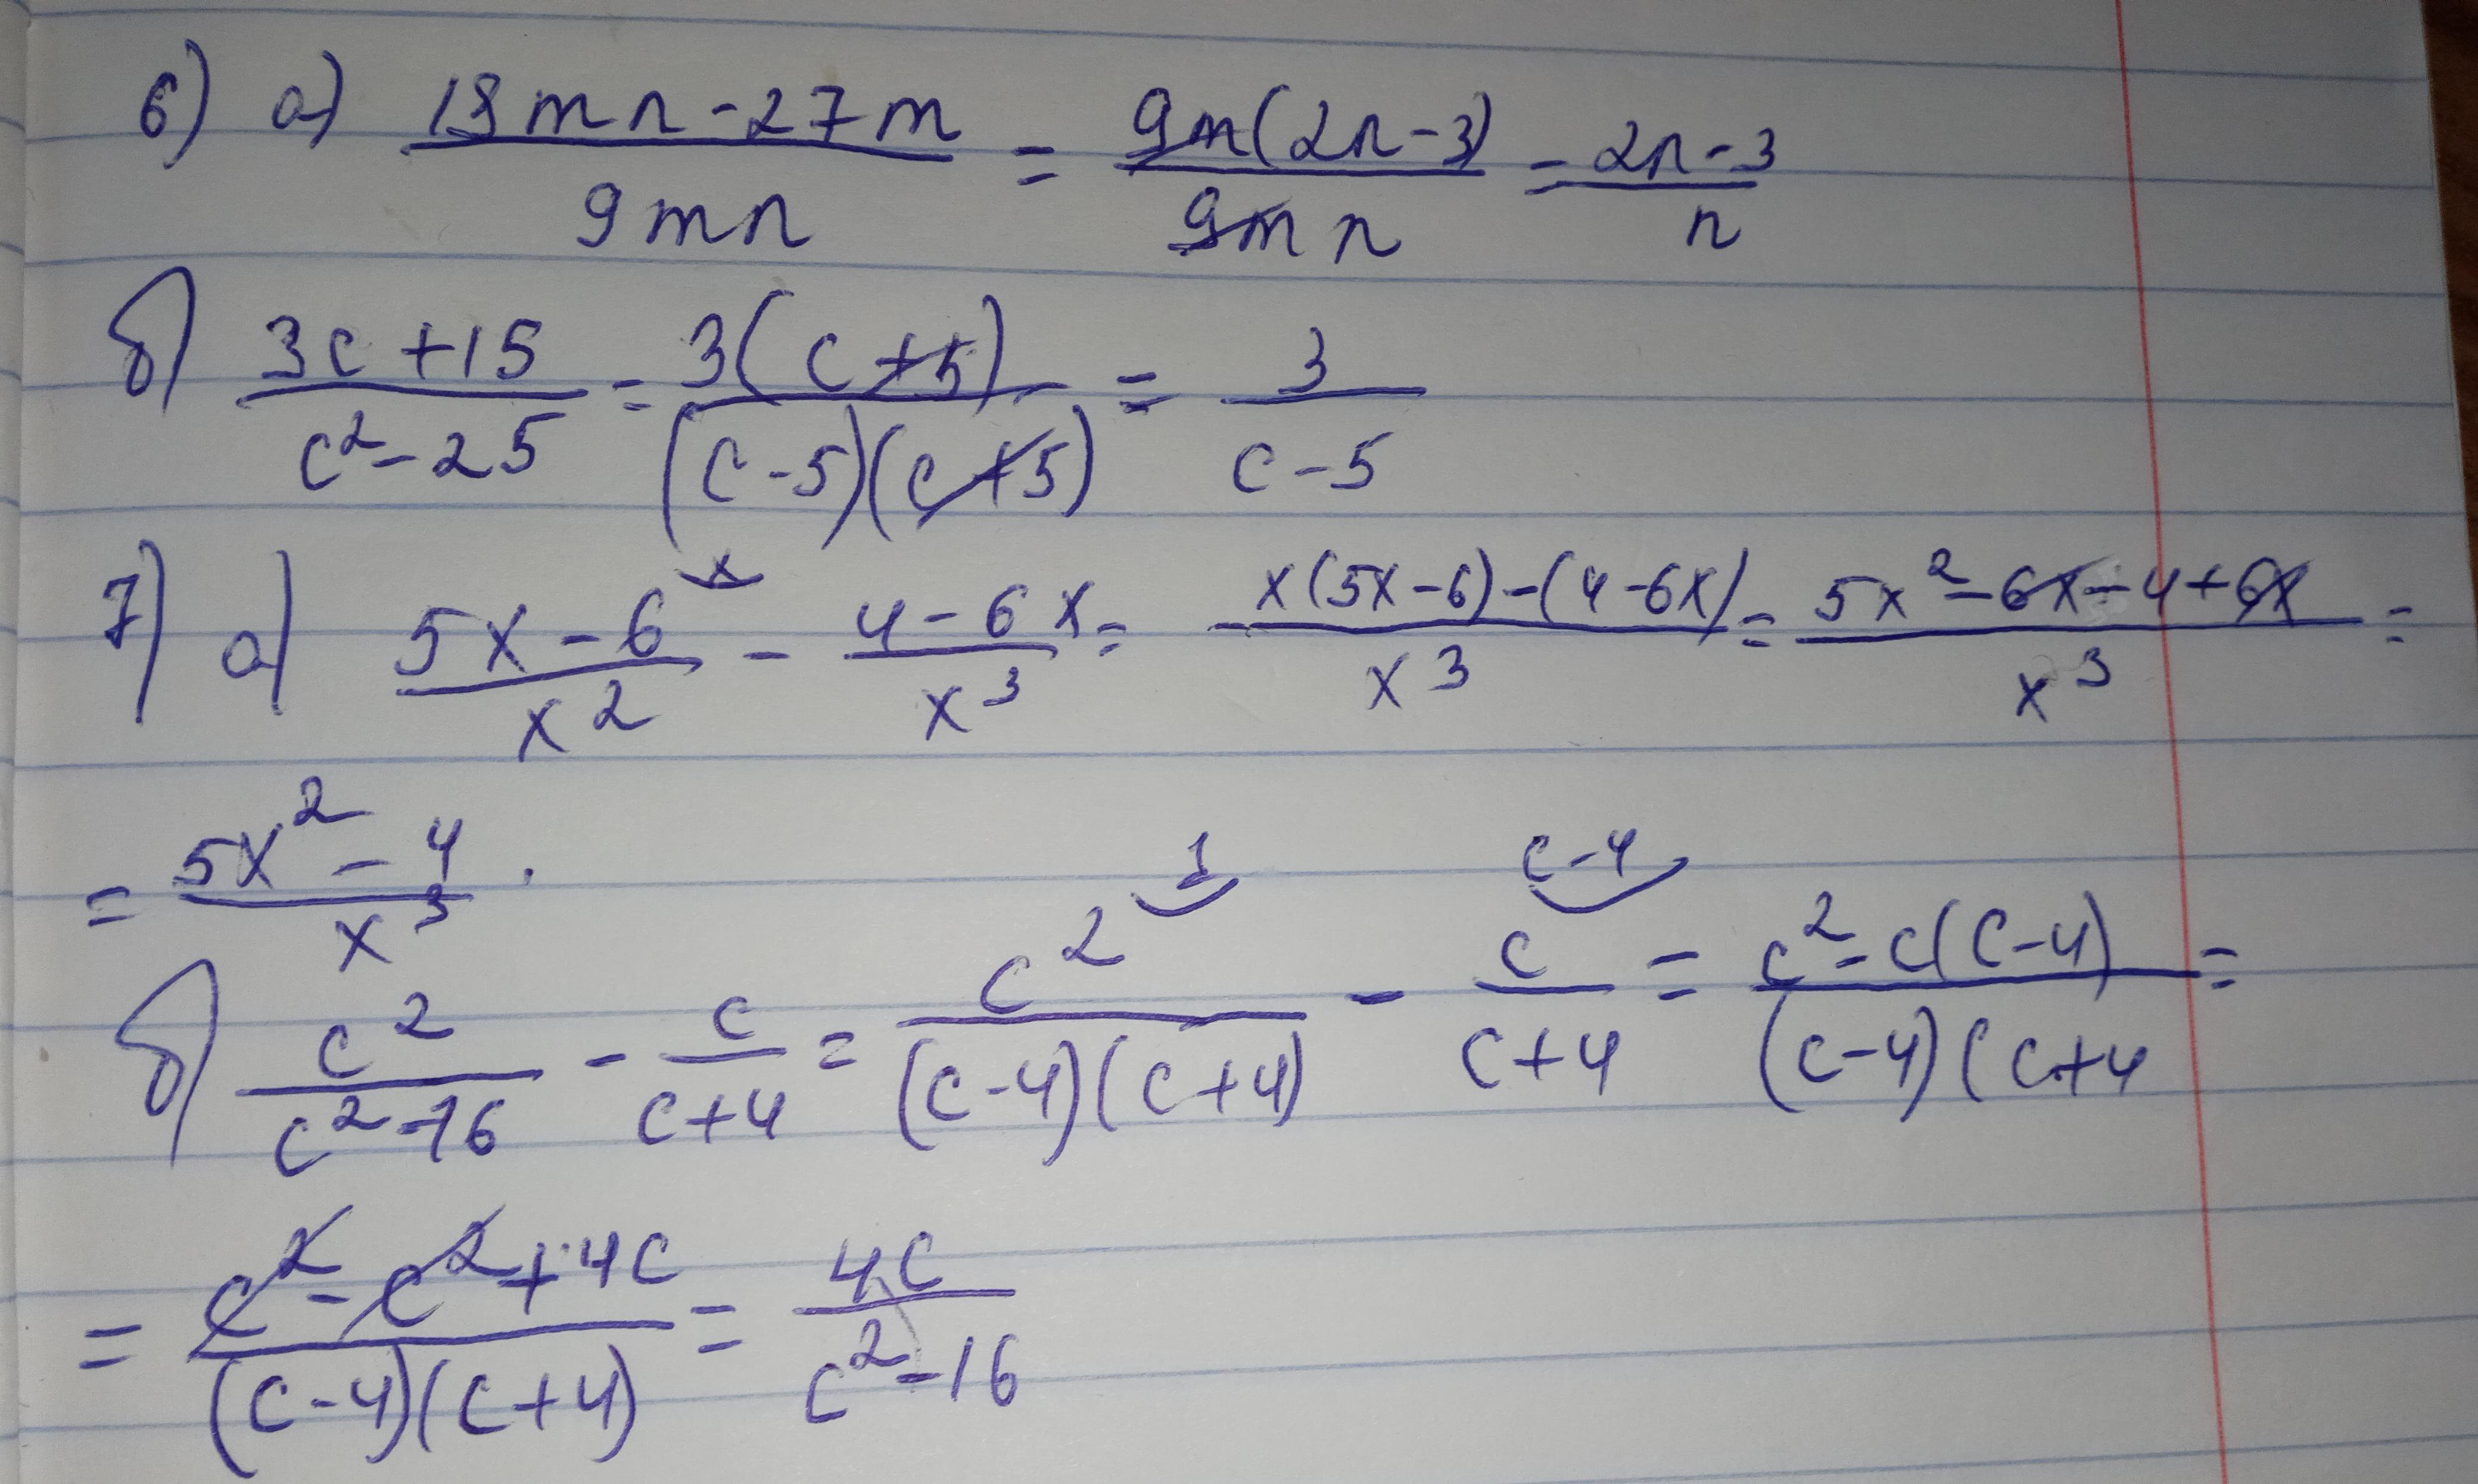 6) а) (18mn-27m)/(9mn) = (9m(2n-3))/(9mn) = (2n-3)/n
б) (3c+15)/(c²-25) = (3(c+5))/((c-5)(c+5)) = 3/(c-5)
7) а) (5x-6)/x² ^x - (4-6x)/x³ = (x(5x-6)-(4-6x))/x³ = (5x²-6x-4+6x)/x³ =
= (5x²-4)/x³.
б) c²/(c²-16) - c/(c+4) = c²/((c-4)(c+4)) ^1 - c/(c+4) ^c-4 = (c²-c(c-4))/((c-4)(c+4 =
= (c²-c²+4c)/((c-4)(c+4)) = 4c/(c²-16)